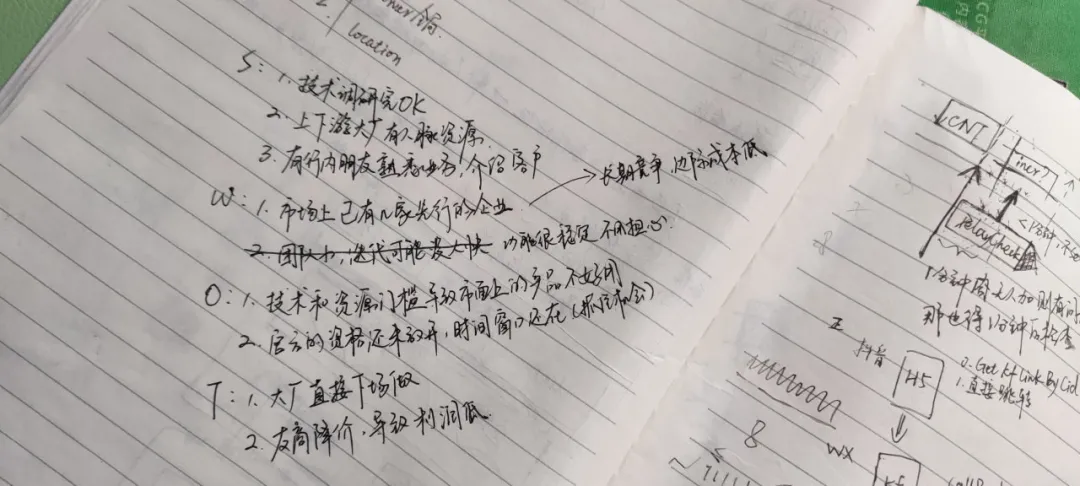 location
S: 1. 技术调研究OK
2. 上下游大厂有人脉资源.
3. 有行内朋友熟悉业务, 介绍客户
W: 1. 市场上已有几家先行的企业
长期竞争, 边际成本低
2. 团队小, 迭代可能 太快 功能很稳定 不用担心.
O: 1. 技术和资源门槛导致市面上的产品不好用
2. 官方的资格还未放开, 时间窗口还在(抓住机会)
T: 1. 大厂直接下场做
2. 友商降价, 导致利润低.
CNT
incr
RelayCheck
1分钟
那也得1分钟后检查
抖音
H5
0. Get kf Link By Cid
1. 直接跳转
8
WX
kf